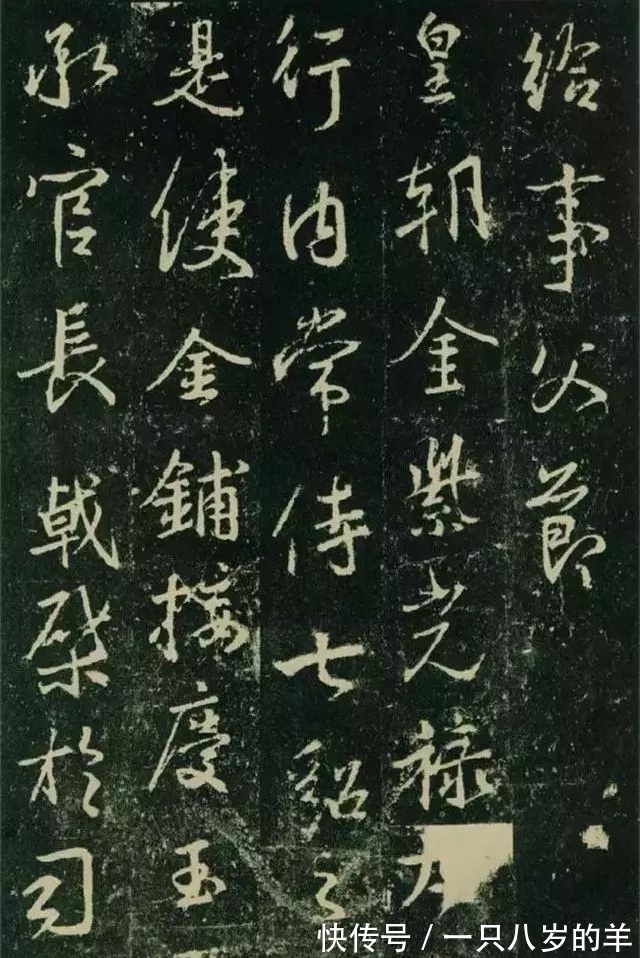 給事父節
皇朝金紫光祿大
行內常侍七貂之
是使金鋪接慶玉
承官長戟棨於司
快传号 / 一只八岁的羊